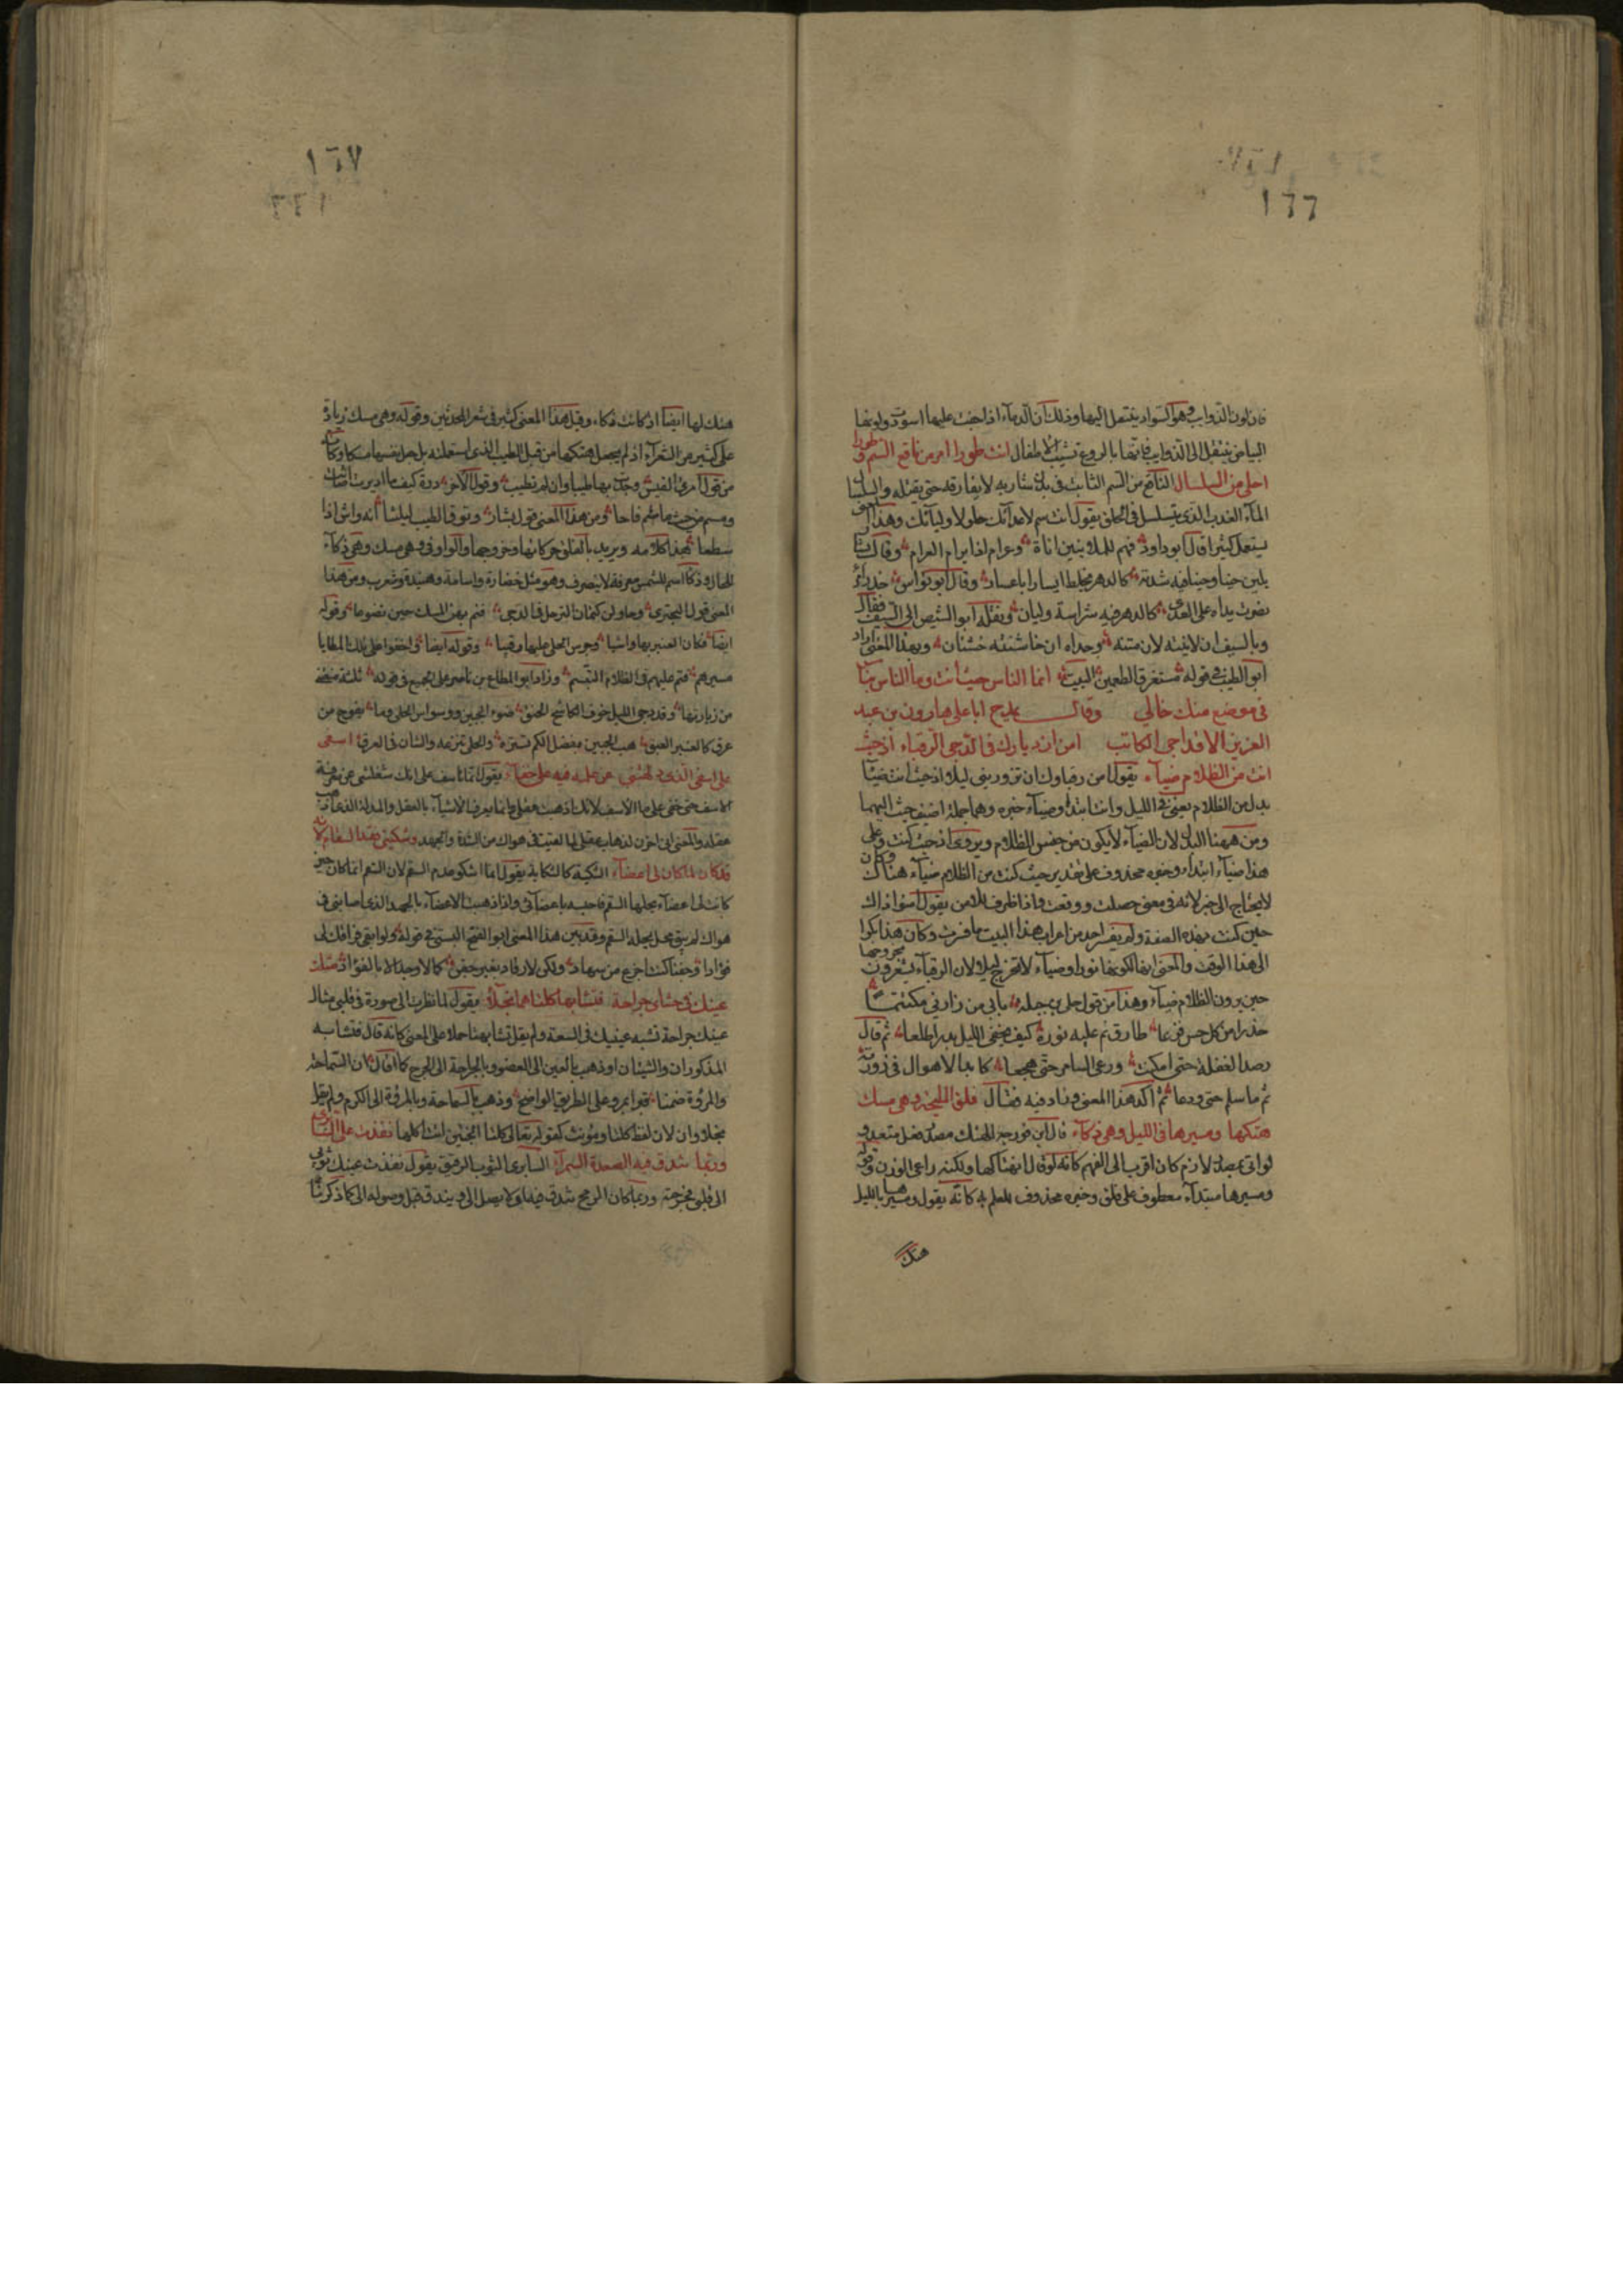 ١٦٦
فان لون الذوايب وهو السواد ينتقل اليها وذلك ان الدماء اذا جفت عليها اسودت ولونها
البياض ينتقل الى الذوايب فانها بالروع تشيب الاطفال انت طورا امر من ناقع السم وطورا
احلى من السلسال الناقع من السم الثابت في بدن شاربه لا يفارقه حتى يقتله والسلسال
المآء العذب الذى يتسلسل في الحلق يقول انت سم لاعدآئك حلو لاوليآئك وهذا
يستعمل كثيرا قال ابو داود فهم للملاينين اناة وعرام اذا يرام العرام وقال
يلين حينا وحينا فيه شدته كالدهر يخلط ايسارا باعسار وقال ابو نواس حذر
يداه على العدى كالدهر فيه شراسة وليان ونقله ابو الشيص الى السيف فقال
وبالسيف ان لاينته لان متنه وحداه ان خاشنته خشنان وبهذا المعنى اراد
ابو الطيب في قوله متفرق الطعمين البيت انما الناس حيث انت وما الناس بناس
في موضع منك خالي وقال يمدح ابا على هارون بن عبد
العزيز الاوراجى الكاتب امن ازديارك في الدجى الرقباء اذ حيث
انت من الظلام ضيآء يقول امن رقباوك ان تزوريني ليلا اذ حيث انت ضيآء
بدل من الظلام يعنى في الليل وانت ابتداء وضيآء خبره وهما جملة اضيف حيث اليهما
ومن ههنا للبدل لان الضيآء لا يكون من جنس الظلام ويروى اذ حيث كنت وعلى
هذا ضيآء ابتداء وخبره محذوف على تقدير حيث كنت من الظلام ضيآء هناك وكان
لا يحتاج الى خبر لانه في معنى حصلت ووقعت واذا ظرف للامن يقول امنوا ذاك
حين كنت بهذه الصفة ولم يفسر احد من اعراب هذا البيت ما فسرت وكان هذا بكرا
الى هذا الوقت والمعنى انها لكونها نورا وضيآء لا تخرج ليلا لان الرقبآء يشعرون بخروجها
حين يرون الظلام ضيآء وهذا من قول على بن جبلة بابي من زارني مكتتما
حذرا من كل حس فزعا طارق نم عليه نوره كيف يخفى الليل بدرا طلعا ثم قال
رصد الغفلة حتى امكنت ورعى السامر حتى هجعا كابد الاهوال في زورته
ثم ما سلم حتى ودعا ثم اكد هذا المعنى وزاد فيه فقال قلق المليحة وهى مسك
هتكها ومسيرها في الليل وهى ذكآء قال ابن فورجة الهتك مصدر فعل متعدى
لو اتى بمصدر لازم كان اقرب الى الفهم كانه لو قال انهتاكها ولكنه راعى الوزن وقوله
ومسيرها مبتدآء معطوف على قلق وخبره محذوف للعلم به كانه يقول ومسيرها بالليل
هتك
١٦٧
هتك لها ايضا اذ كانت ذكاء وقبل هذا المعنى كثير في شعر المحدثين وقوله وهى مسك زيادة
على كثير من الشعرآء اذ لم يجعل هتكها من قبل الطيب الذى استعملته بل جعل نفسها مسكا وكانه
من قول امرئ القيس وجدت بها طيبا وان لم تطيب وقول الآخر درة كيف ما اديرت اضاءت
ومشم من حيث ما شم فاحا ومن هذا المعنى قول بشار وتوق الطيب ليلتنا انه واش اذا
سطعا هذا كلامه ويريد بالقلق حركاتها وخروجها والواو في وهى مسك وهى ذكآء
للحال وذكآء اسم للشمس معرفة لا ينصرف وهو مثل خضارة واسامة وهنيدة وشعوب ومن هذا
المعنى قول البحترى وحاولن كتمان الترحل في الدجى فنم بهن المسك حين تضوعا وقوله
ايضا فكان العبير بها واشيا وجرس الحلى عليها رقيبا وقوله ايضا واخفوا على تلك المطايا
مسيرهم فنم عليهم في الظلام التبسم وزاد ابو المطاع بن ناصر على الجميع في قوله ثلثة منعتها
من زيارتها وقد دجى الليل خوف الكاشح الحنق ضوء الجبين ووسواس الحلى وما يفوح من
عرق كالعنبر العبق هب الجبين بفضل الكم تستره والحلى تنزعه والشان في العرق اسفى
على اسفى الذى دلهتنى عن علمه فيه على خفآء يقول انما تاسف على انك شغلتنى عن معرفة
الاسف حتى خفى على ما الاسف لانك اذهبت عقلى وانما يعرف الاشيآء بالعقل والمدله الذى ذهب
عقله والمعنى انى احزن لذهاب عقلى لما لقيت في هواك من الشدة والجهد وشكيتى فقد السقام لانه
قد كان لما كان لى اعضآء الشكية كالشكاية يقول انما اشكو عدم السقم لان السقم انما كان حين
كانت لى اعضآء يحلها السقم فاحسه باعضآئى واذا ذهبت الاعضآء بالجهد الذى اصابنى في
هواك لم يبق محل يحله السقم وقد بين هذا المعنى ابو الفتح البستى في قوله ولو ابقى فراقك لى
فؤادا وجفنا كنت اجزع من سهاد ولكن لا رقاد بغير جفن كما لا وجد الا بالفؤاد مثلت
عينك في حشاى جراحة فتشابها كلتاهما نجلآء يقول لما نظرت الى صورة في قلبى مثال
عينك جراحة تشبه عينيك في السعة ولم يقل تشابهتا حملا على المعنى كانه قال فتشابه
المذكوران والشيئان او ذهب بالعين الى العضو وبالجراحة الى الجرح كما قال ان السماحة
والمروة ضمنا قبرا بمرو على الطريق الواضح وذهب بالسماحة وبالمروة الى الكرم ولم يقل
نجلاوان لان لفظ كلتا موحد مؤنث كقوله تعالى كلتا الجنتين اتت اكلها نفذت على السابرى
وربما تندق فيه الصعدة السمرآء السابرى الثوب الرقيق يقول نفذت عينك ثوبى
الى قلبى فجرحته وربما كان الرمح تندق فيه ولا يصل الى ويندق قبل وصوله الى كما ذكرنا